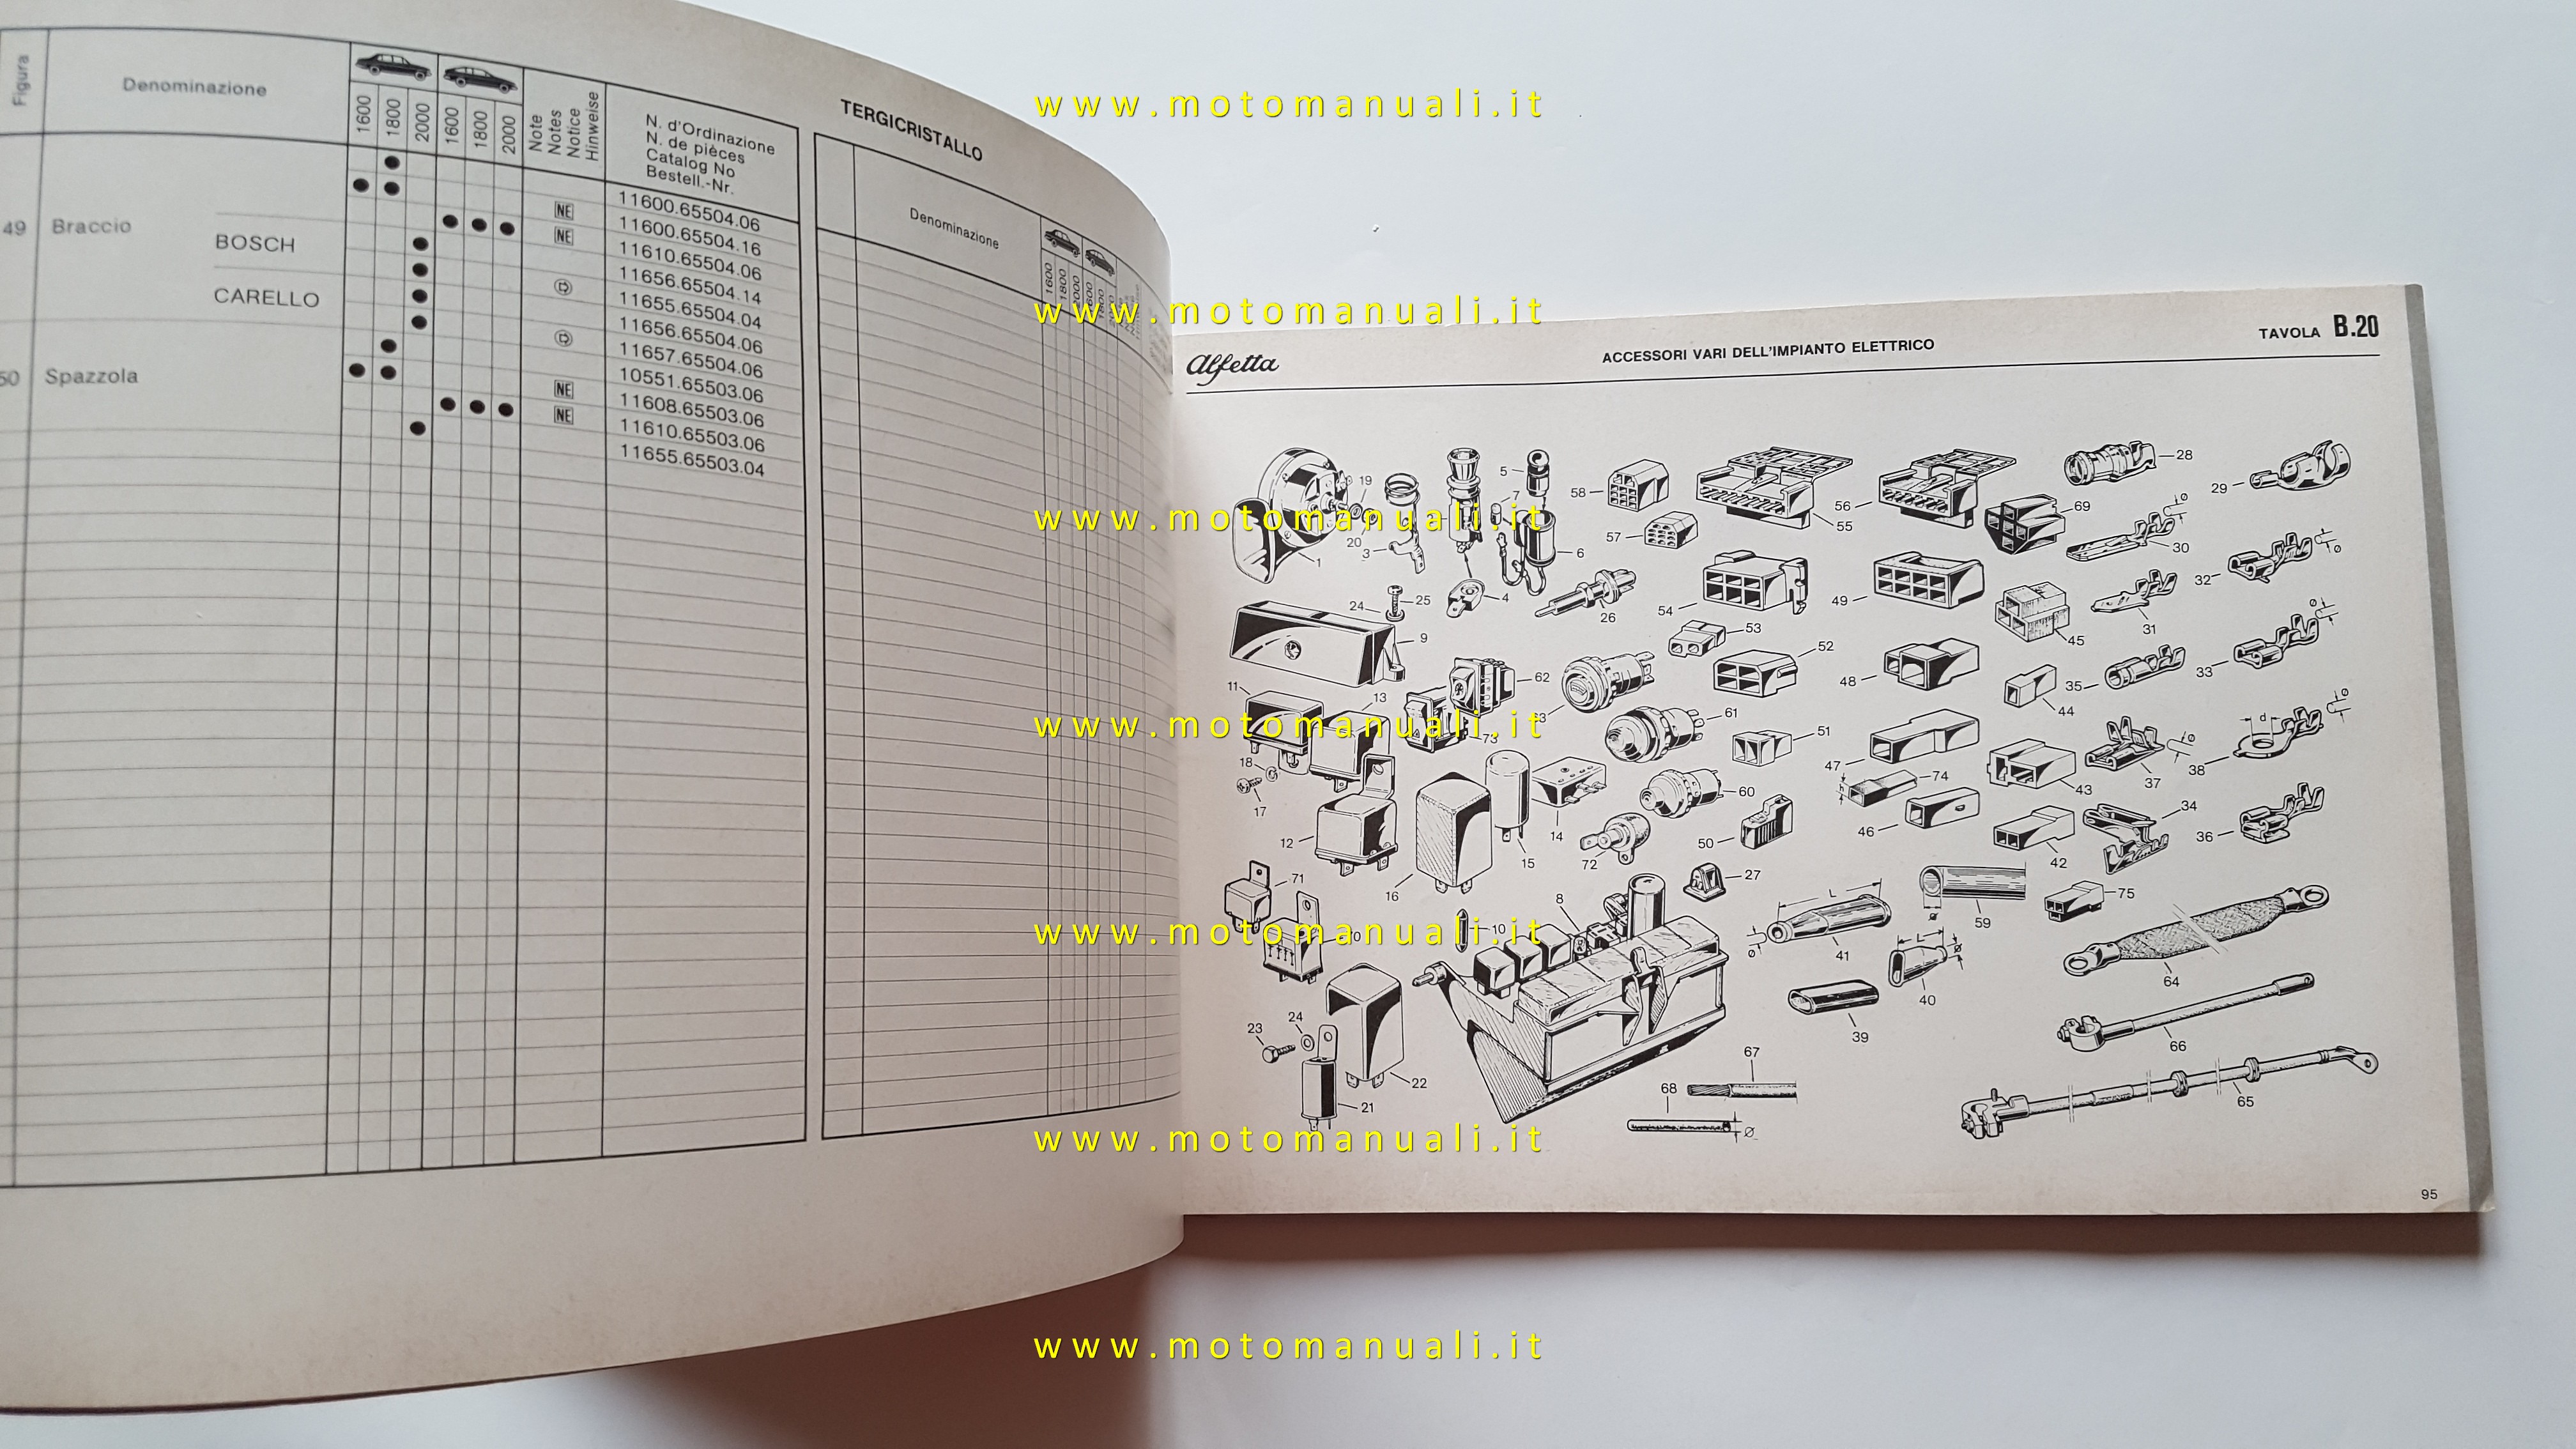 Figura
Denominazione
1600
1800
2000
1600
1800
2000
Note
Notes
Notice
Hinweise
N. d'Ordinazione
N. de pièces
Catalog No
Bestell.-Nr.
11600.65504.06
NE 11600.65504.16
49 Braccio NE 11610.65504.06
BOSCH 11656.65504.14
11655.65504.04
CARELLO 11656.65504.06
11657.65504.06
10551.65503.06
50 Spazzola NE 11608.65503.06
NE 11610.65503.06
11655.65503.04
TERGICRISTALLO
Denominazione
1600
1800
2000
Alfetta
ACCESSORI VARI DELL'IMPIANTO ELETTRICO
TAVOLA B.20
19
5
7
58
56
55
28
29
69
20
3
1
6
57
30
32
24
25
4
26
54
49
45
31
9
53
52
48
35
33
11
13
62
61
51
44
73
18
17
47
74
43
37
38
14
60
46
34
12
15
72
50
42
36
16
71
27
8
59
75
10
L
41
L
40
64
39
23
24
66
22
67
68
21
65
Ø
d
95
www.motomanuali.it
www.motomanuali.it
www.motomanuali.it
www.motomanuali.it
www.motomanuali.it
www.motomanuali.it
www.motomanuali.it